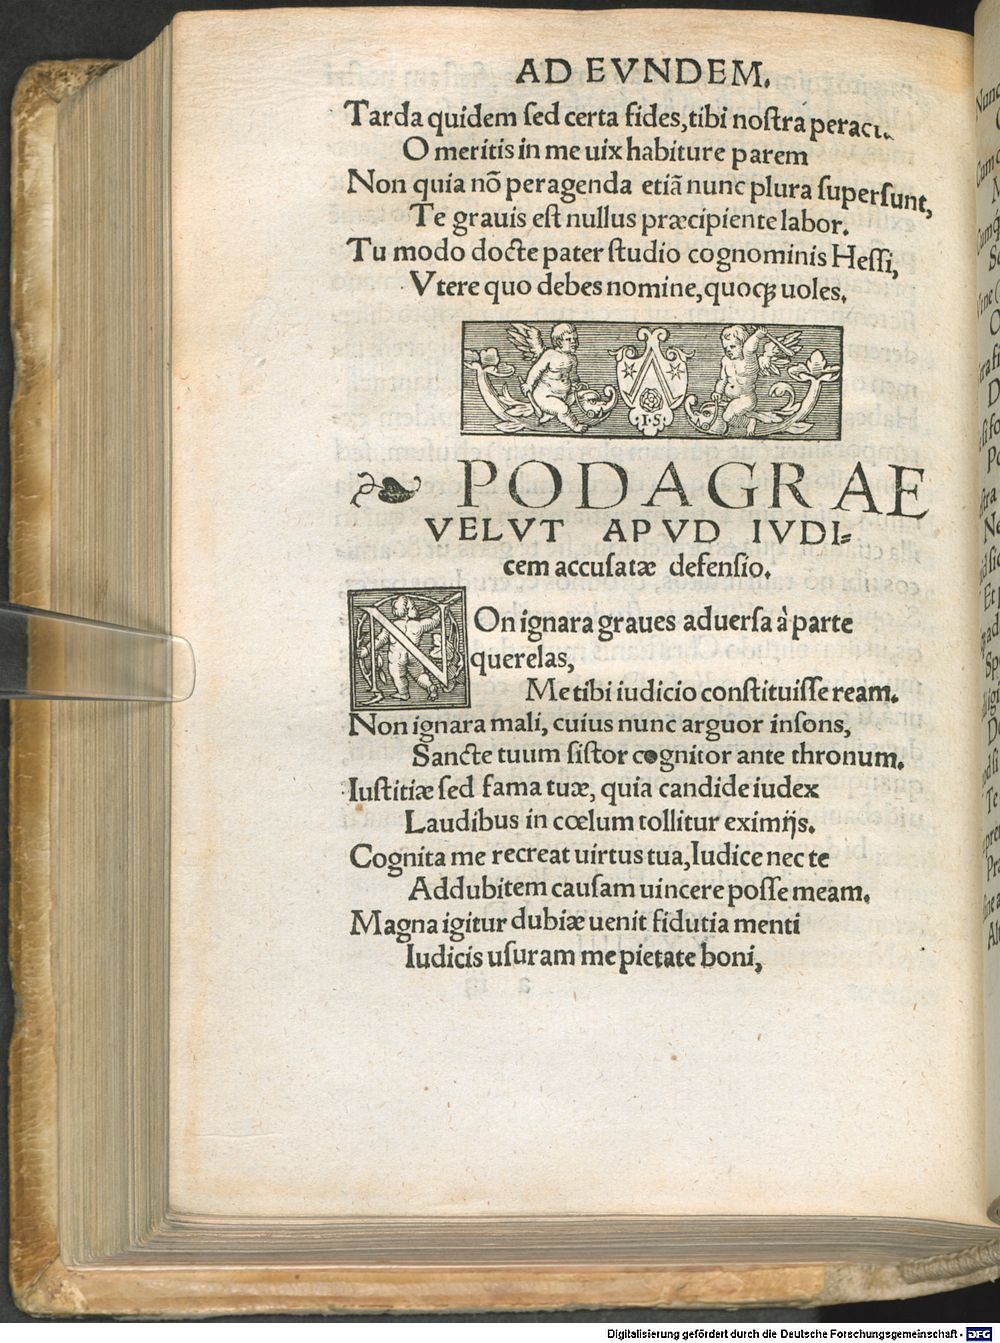 AD EVNDEM.
Tarda quidem ſed certa fides, tibi noſtra
O meritis in me uix habiture parem
Non quia nõ peragenda etiã nunc plura ſuperſunt,
Te grauis eſt nullus præcipiente labor.
Tu modo docte pater ſtudio cognominis Heſſi,
Vtere quo debes nomine, quoqꝫ uoles.
I·S
PODAGRAE
VELVT APVD IVDI=
cem accuſatæ defenſio.
NOn ignara graues aduerſa à parte
querelas,
Me tibi iudicio conſtituiſſe ream.
Non ignara mali, cuius nunc arguor inſons,
Sancte tuum ſiſtor cognitor ante thronum.
Iuſtitiæ ſed fama tuæ, quia candide iudex
Laudibus in cœlum tollitur eximijs.
Cognita me recreat uirtus tua, Iudice nec te
Addubitem cauſam uincere poſſe meam.
Magna igitur dubiæ uenit fidutia menti
Iudicis uſuram me pietate boni,
Digitalisierung gefördert durch die Deutsche Forschungsgemeinschaft - DFG